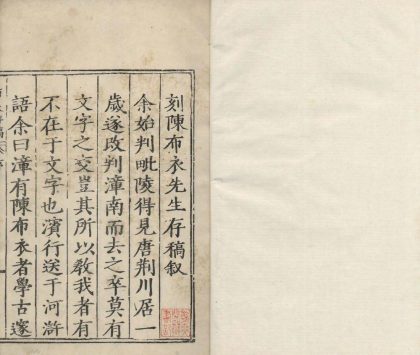 刻陳布衣先生存稿叙
余始判毗陵得見唐荆川居一
歲遂改判漳南而去之卒莫有
文字之交豈其所以教我者有
不在于文字也濱行送于河滸
語余曰漳有陳布衣者學古邃